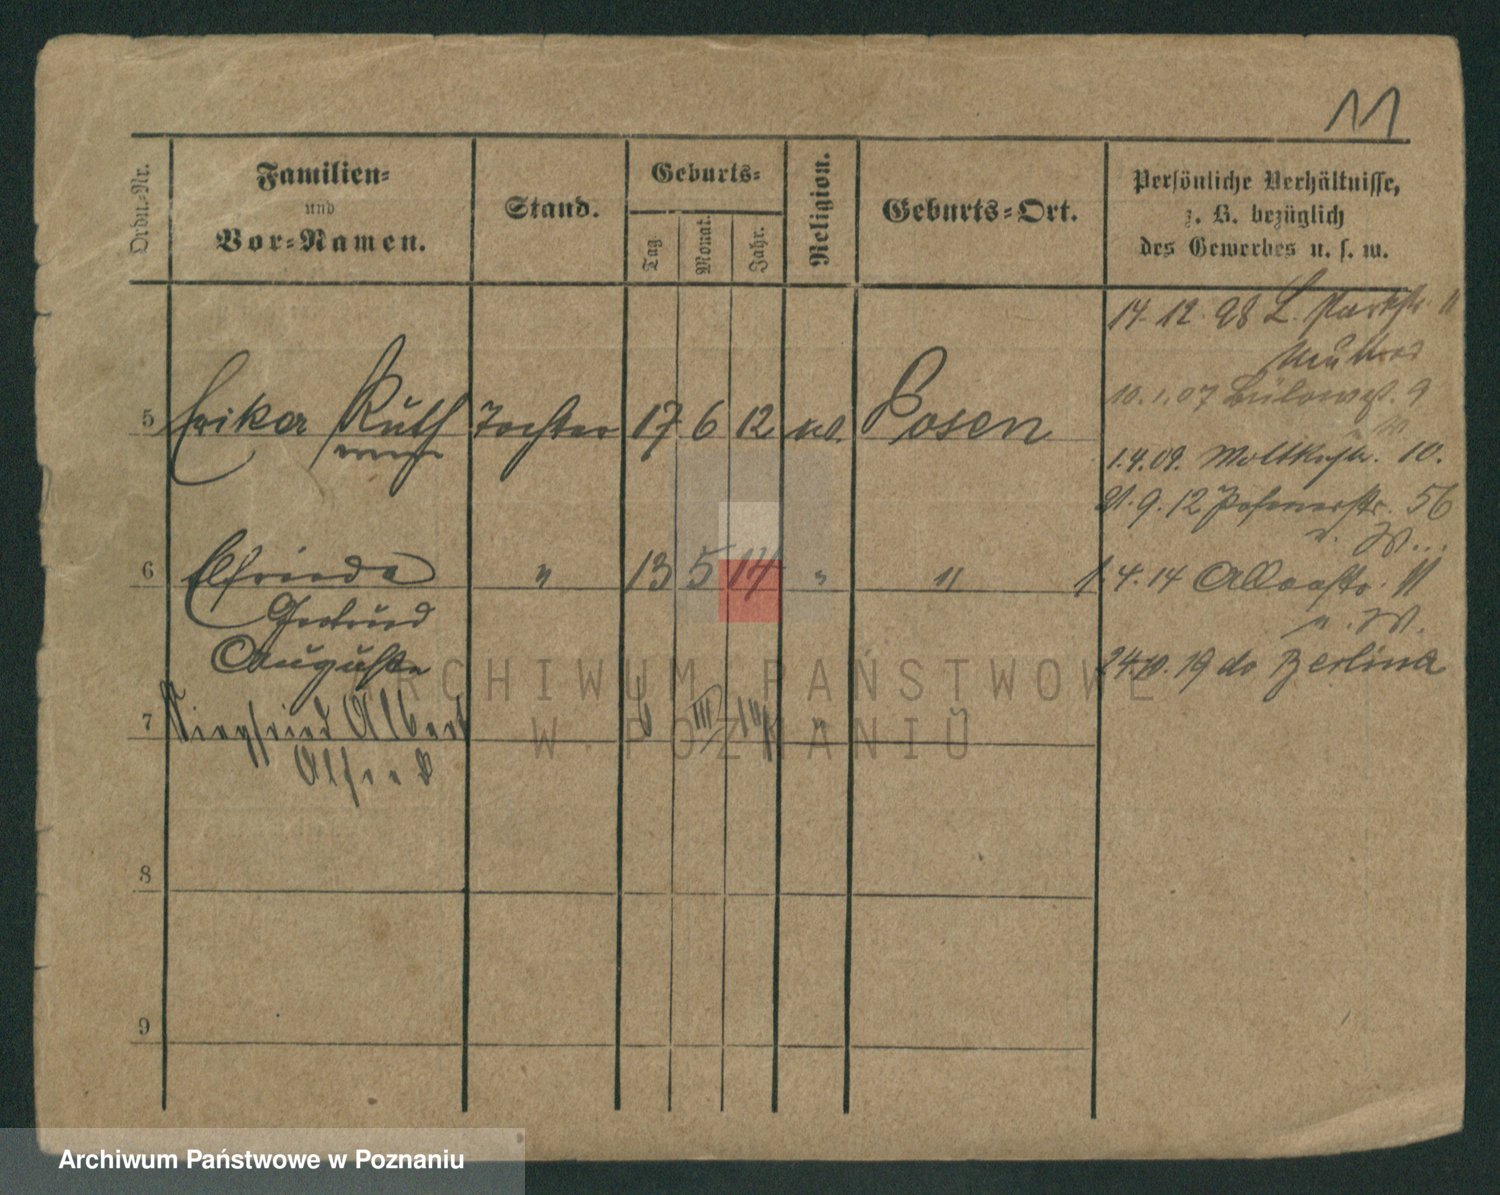 11
Ordn.-Nr.
Familien-
und
Vor-Namen.
Stand.
Geburts-
Tag.
Monat.
Jahr.
Religion.
Geburts-Ort.
Persönliche Verhältnisse,
z. B. bezüglich
des Gewerbes u. s. w.
14.12.98 L. Parkstr. 11
10.1.07 Bülowst. 9
5 Erika Ruth Tochter 17 6 12 Posen
1.4.09. Moltkestr. 10.
21.9.12 Posenerstr. 56
6 Elfriede " 13 5 14 " "
1.4.14
Gertrud
Auguste
24.10.19 do Berlina
7 Siegfried Albert III "
Alfred
8
9
ARCHIWUM PAŃSTWOWE
W POZNANIU
Archiwum Państwowe w Poznaniu